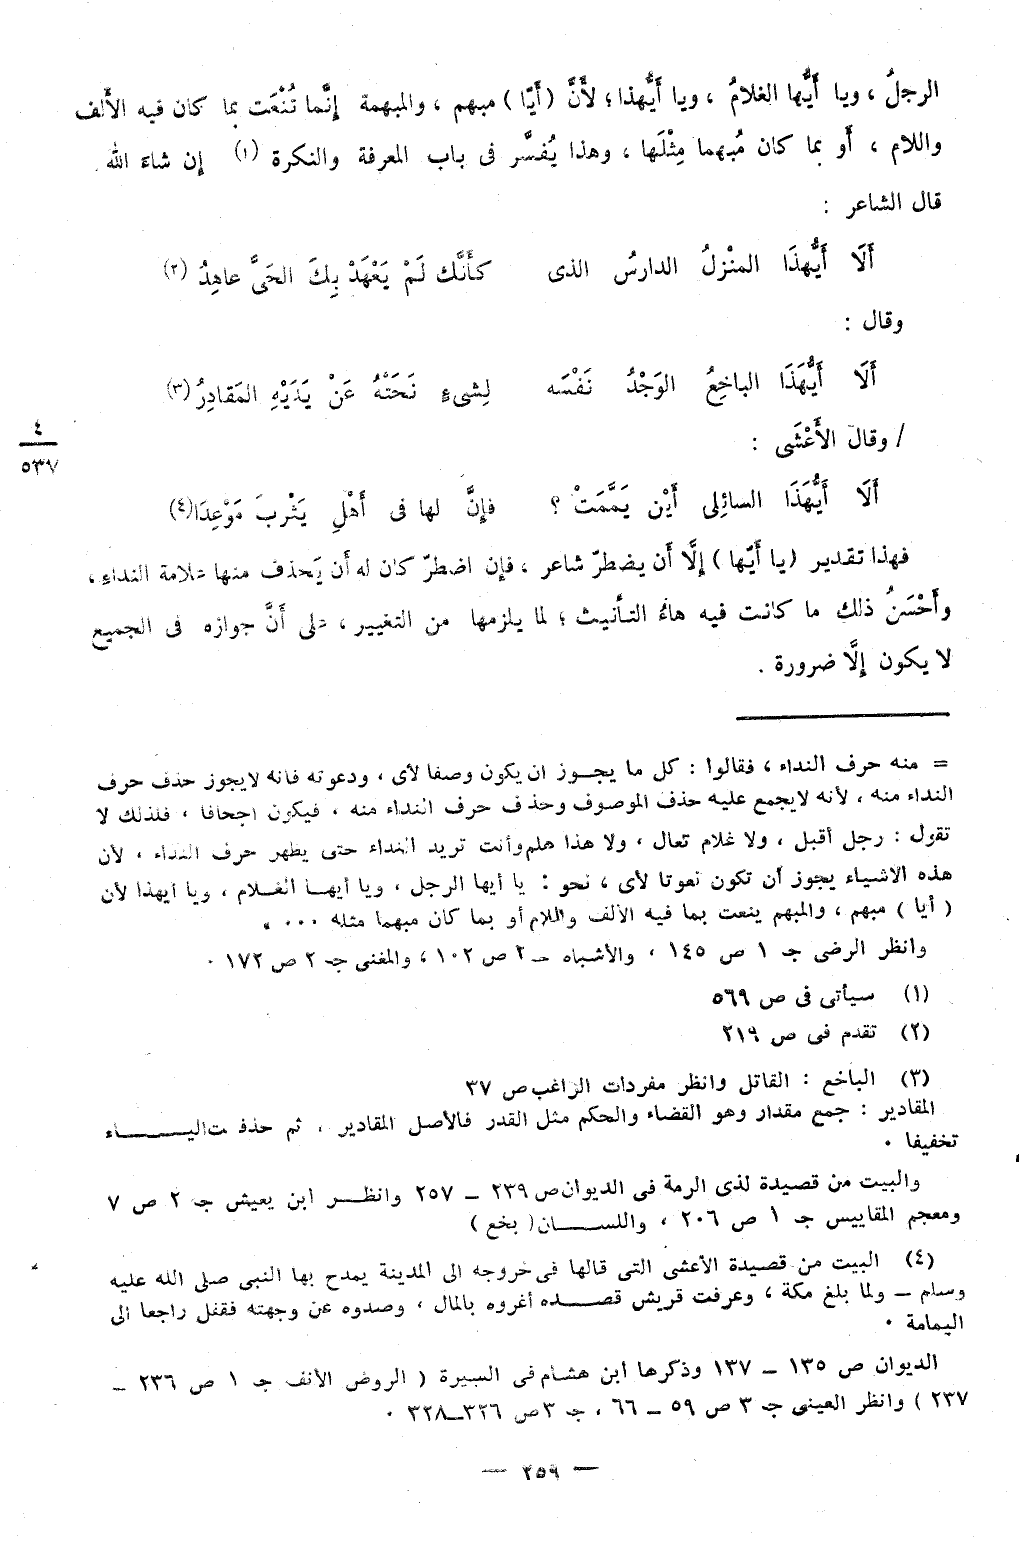 الرجلُ ، ويا أَيُّها الغلامُ ، ويا أَيُّهذا ؛ لأَنَّ (أَيًّا) مبهم ، والمبهمة إنَّما تُنْعَت بما كان فيه الأَلف
واللام ، أَو بما كان مُبهما مِثْلَها ، وهذا يُفسَّر فى باب المعرفة والنكرة (١) إن شاءَ الله .
قال الشاعر :
أَلَا أَيُّهذَا المنْزلُ الدارسُ الذى كأَنَّك لَمْ يَعْهَدْ بِكَ الحَىَّ عاهِدُ (٢)
وقال :
أَلَا أَيُّهَذَا الباخِعُ الوَجْدُ نَفْسَه لِشىءٍ نَحَتْهُ عَنْ يَدَيْهِ المَقادِرُ (٣)
/ وقال الأَعْشَى :
٤
٥٣٧
أَلَا أَيُّهَذَا السائِلى أَيْن يَمَّمَتْ ؟ فإنَّ لها فى أَهْلِ يَثْربَ مَوْعِدَا (٤)
فهذا تقدير (يا أَيّها) إلَّا أَن يضطرّ شاعر ، فإن اضطرّ كان له أَن يَحذف منها علامة النداءِ ،
وأَحْسَنُ ذلك ما كانت فيه هاءُ التأنيث ؛ لما يلزمها من التغيير ، على أَنَّ جوازه فى الجميع
لا يكون إلَّا ضرورة .
= منه حرف النداء ، فقالوا : كل ما يجوز ان يكون وصفا لأى ، ودعوته فانه لايجوز حذف حرف
النداء منه ، لأنه لايجمع عليه حذف الموصوف وحذف حرف النداء منه ، فيكون اجحافا ، فلذلك لا
تقول : رجل أقبل ، ولا غلام تعال ، ولا هذا هلم وأنت تريد النداء حتى يظهر حرف النداء ، لأن
هذه الاشياء يجوز أن تكون نعوتا لأى ، نحو : يا أيها الرجل ، ويا أيها الغلام ، ويا أيهذا لأن
( أيا ) مبهم ، والمبهم ينعت بما فيه الألف واللام أو بما كان مبهما مثله ...
وانظر الرضى جـ ١ ص ١٤٥ ، والأشباه جـ ٢ ص ١٠٢ ، والمغنى جـ ٢ ص ١٧٢ .
(١) سيأتى فى ص ٥٦٩
(٢) تقدم فى ص ٢١٩
(٣) الباخع : القاتل وانظر مفردات الراغب ص ٣٧
المقادير : جمع مقدار وهو القضاء والحكم مثل القدر فالأصل المقادير ، ثم حذفت الياء
تخفيفا .
والبيت من قصيدة لذى الرمة فى الديوان ص ٢٣٩ – ٢٥٧ وانظر ابن يعيش جـ ٢ ص ٧
ومعجم المقاييس جـ ١ ص ٢٠٦ ، واللسان ( بخع )
(٤) البيت من قصيدة الأعشى التى قالها فى خروجه الى المدينة يمدح بها النبى صلى الله عليه
وسلم – ولما بلغ مكة ، وعرفت قريش قصده أغروه بالمال ، وصدوه عن وجهته فقفل راجعا الى
اليمامة .
الديوان ص ١٣٥ – ١٣٧ وذكرها ابن هشام فى السيرة ( الروض الأنف جـ ١ ص ٢٣٦ –
٢٣٧ ) وانظر العينى جـ ٣ ص ٥٩ – ٦٦ ، جـ ٣ ص ٣٢٦–٣٢٨ .
— ٢٥٩ —